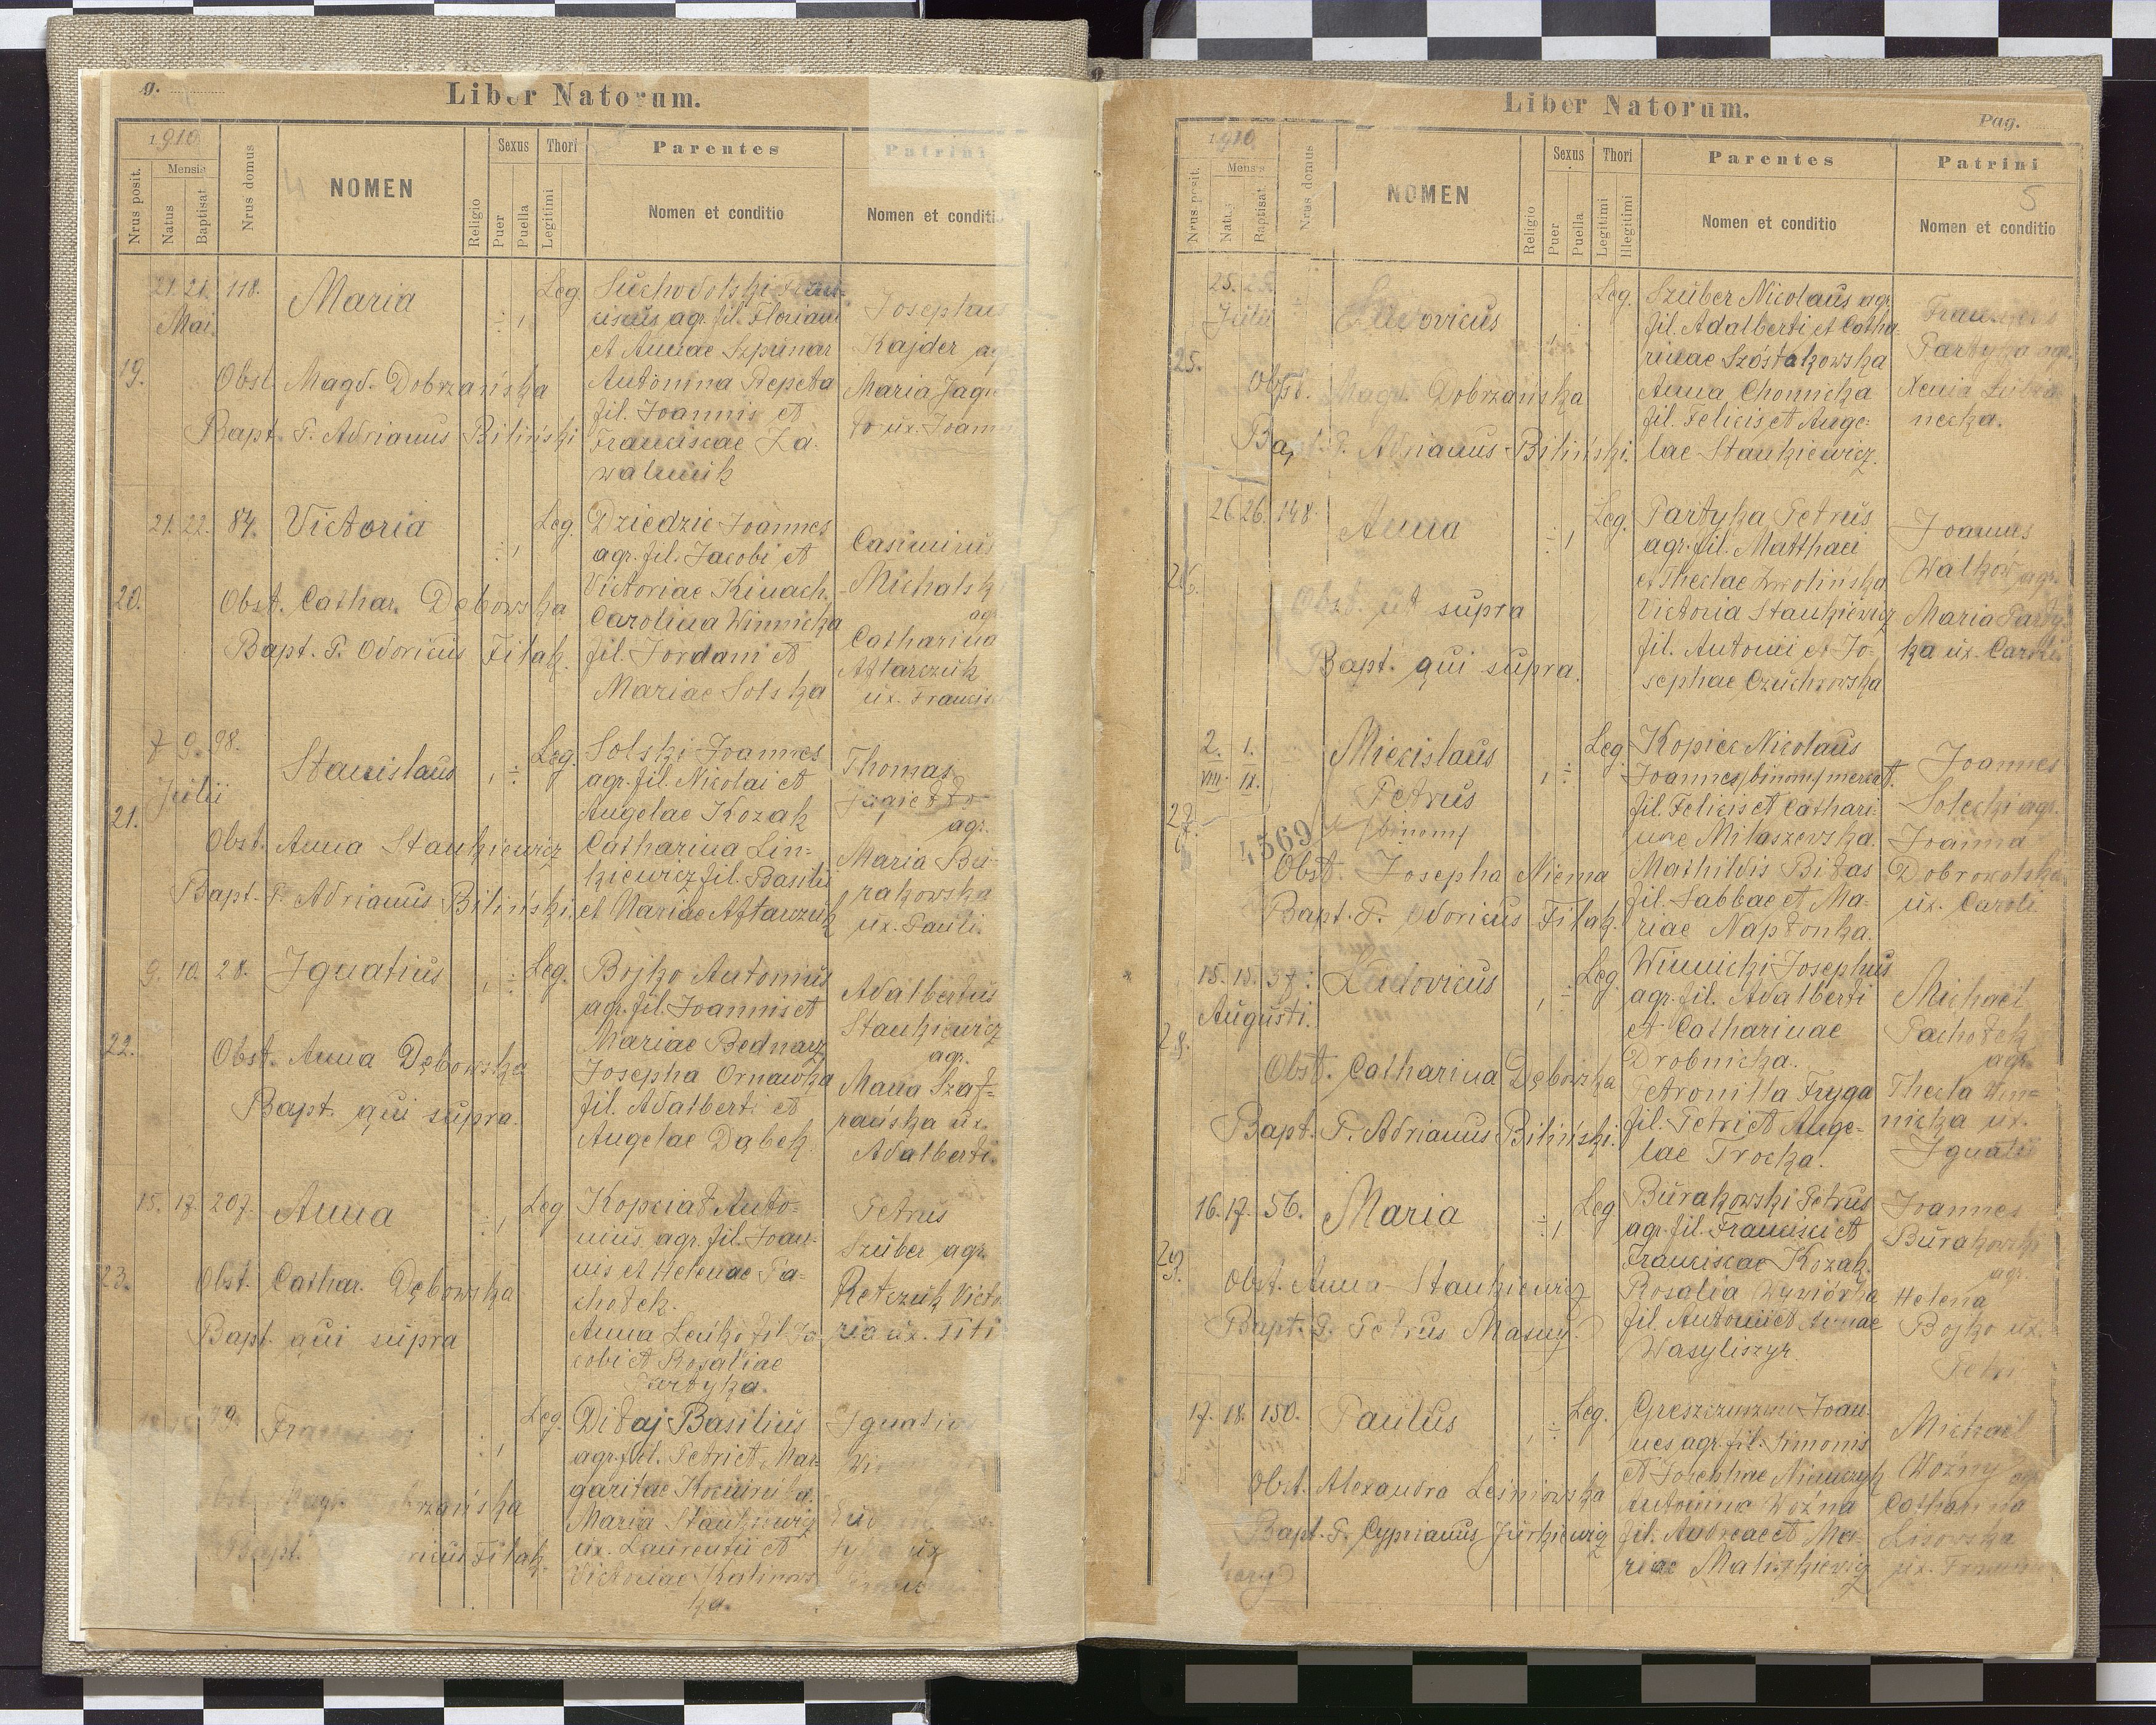 Liber Natorum.
1910
Nrus posit.
Mensis
Natus
Baptisat.
Nrus domus
NOMEN
Religio
Sexus
Puer
Puella
Thori
Legitimi
Parentes
Nomen et conditio
Patrini
Nomen et conditi
19.
21. 21. 118.
Mai.
Maria
Leg.
Obst. Magd. Dobrzańska
Bapt. P. Adrianus Biliński
Suchodolski
ciscus agr. fil. Floriani
et Annae Szpunar
Antonina Repeta
fil. Joannis et
Franciscae Za-
walniuk
Josephus
Kajder
Maria
ux.
20.
21. 22. 84.
Victoria
Leg.
Obst. Cathar. Dębowska
Bapt. P. Odoricus Fitak.
Dziedzic Joannes
agr. fil. Jacobi et
Victoriae Kinach.
Carolina Winnicka
fil. Jordani et
Mariae Solska
Casimirus
Michalsk
agr
Catharina
Aftarczuk
ux. Francis
21.
7 9. 98.
Julii
Stanislaus
Leg.
Obst. Anna Stankiewicz
Bapt. P. Adrianus Biliński.
Solski Joannes
agr. fil. Nicolai et
Angelae Kozak
Catharina Lin-
kiewicz fil. Basilii
et Mariae Aftarczuk
Thomas
agr.
Maria Bu-
rakowska
ux. Pauli.
22.
9. 10. 28.
Ignatius
Leg.
Obst. Anna Dębowska
Bapt. qui supra.
Bojko Antonius
agr. fil. Joannis et
Mariae Bednarz
Josepha Ornawka
fil. Adalberti et
Angelae Dąbek.
Adalbertus
Stankiewicz
agr.
Maria Szaf-
rańska ux.
Adalberti.
23.
15. 17. 207.
Anna
Leg
Obst. Cathar. Dębowska
Bapt. qui supra
Kopciał Anto-
nius agr. fil. Joan-
nis et Helenae Pa-
chołek.
Anna Leńko fil. Ja-
cobi et Rosaliae
Partyka.
Petrus
Szuber agr.
Retczuk Victo
ria ux. Titi
Leg.
rzańska
Fitak.
Diłaj Basilius
agr. fil. Petri et Mar-
garitae
Maria Stankiewicz
ux. Laurentii et
Victoriae Kalinows
ka.
Ignatiu
ux
Liber Natorum.
Pag.
5
1910
Nrus posit.
Mensis
Natus
Baptisat.
Nrus domus
NOMEN
Religio
Sexus
Puer
Puella
Thori
Legitimi
Illegitimi
Parentes
Nomen et conditio
Patrini
Nomen et conditio
25.
25. 25.
Julii
Ludovicus
Leg.
Obst. Magd. Dobrzańska
Bapt. P. Adrianus Biliński.
Szuber Nicolaus agr.
fil. Adalberti et Catha
rinae Szóstakowska
Anna Chomicka
fil. Felicis et Ange-
lae Stankiewicz.
Partyka agr.
necka.
26.
26. 26. 148.
Anna
Leg.
Obst. ut supra
Bapt. qui supra.
Partyka Petrus
agr. fil. Matthaei
et Theclae Kwolińska
Victoria Stankiewicz
fil. Antonii et Jo-
sephae Czuchrowska
Joannes
Walków agr.
Maria Party
ka ux. Caroli
27.
2. 1.
VIII. IX.
Miecislaus
Petrus
/binom/
4569
Leg
Obst. Josepha Niema
Bapt. P. Odoricus Fitak.
Kopiec Nicolaus
Joannes /binom/ mercat.
fil. Felicis et Cathari-
nae Milaszewska.
Mathildis Biłas
fil. Sabbae et Ma-
riae Napłonka.
Joannes
Solecki agr.
Joanna
Dobrowolska
ux. Caroli
28.
15. 15. 37.
Augusti.
Ludovicus
Leg.
Obst. Catharina Dębowska
Bapt. P. Adrianus Biliński.
Winnicki Josephus
agr. fil. Adalberti
et Catharinae
Drobnicka.
Petronilla Fryga
fil. Petri et Ange-
lae Trocka.
Michael
Pachołek
agr.
Thecla Win-
nicka ux.
Ignatii
29.
16. 17. 56.
Maria
Leg
Obst. Anna Stankiewicz
Bapt. P. Petrus Masny.
Burakowski Petrus
agr. fil. Francisci et
Franciscae Kozak.
Rosalia Wywiórka
fil. Antonii et Annae
Wasyliszyn.
Joannes
Burakowsk
agr.
Helena
Bojko ux.
Petri
17. 18. 150.
Paulus
Leg.
Obst. Alexandra Leśniowska
Bapt. P. Cyprianus Jurkiewicz
Joan-
nes agr. fil. Simonis
et Josephae
Antonina Woźna
fil. Andreae et Ma-
riae
Michael
Woźny
Catharina
Lisowska
ux.